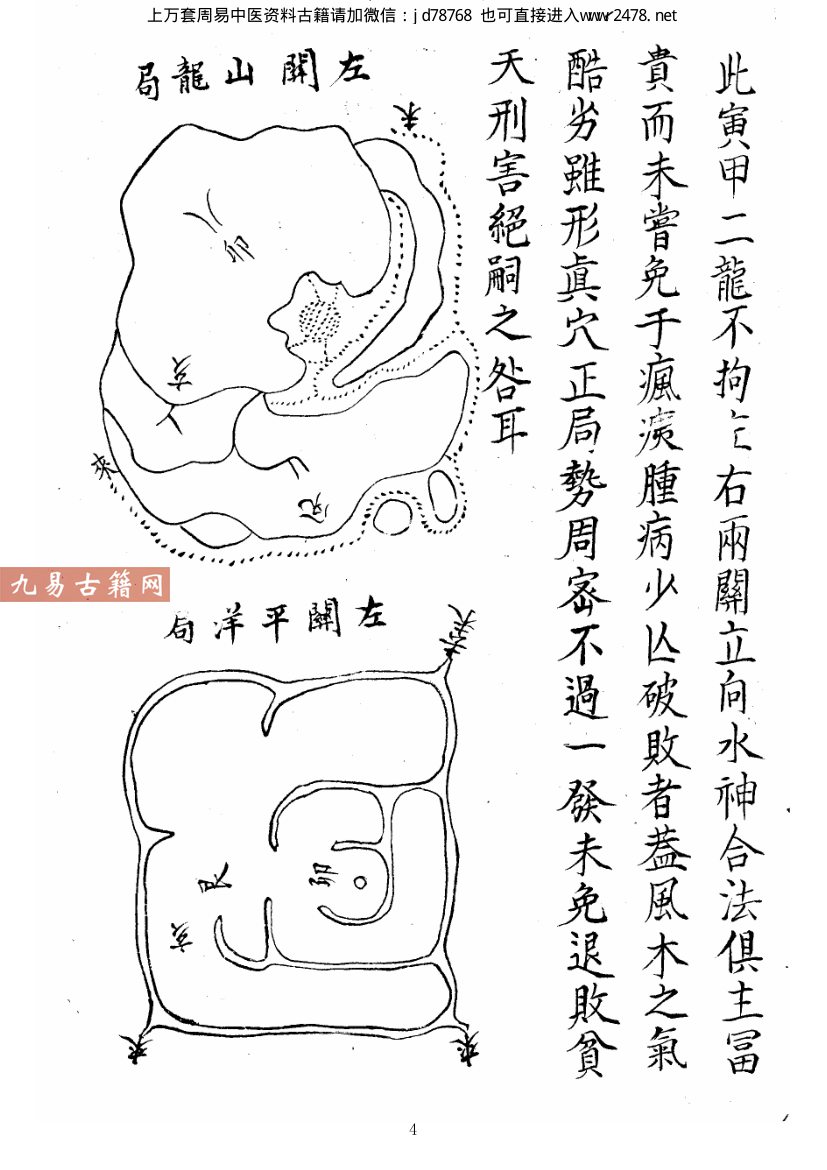 上万套周易中医资料古籍请加微信：jd78768 也可直接进入www.r2478.net
此寅甲二龍不拘左右兩關立向水神合法俱主冨
貴而未嘗免于瘋痰腫病少亾破敗者葢風木之氣
酷劣雖形眞穴正局勢周宻不過一發未免退敗貧
天刑害絕嗣之咎耳
左關山龍局
来
卯
亥
來
艮
九易古籍网
左關平洋局
艮
卯
亥
来
来
4